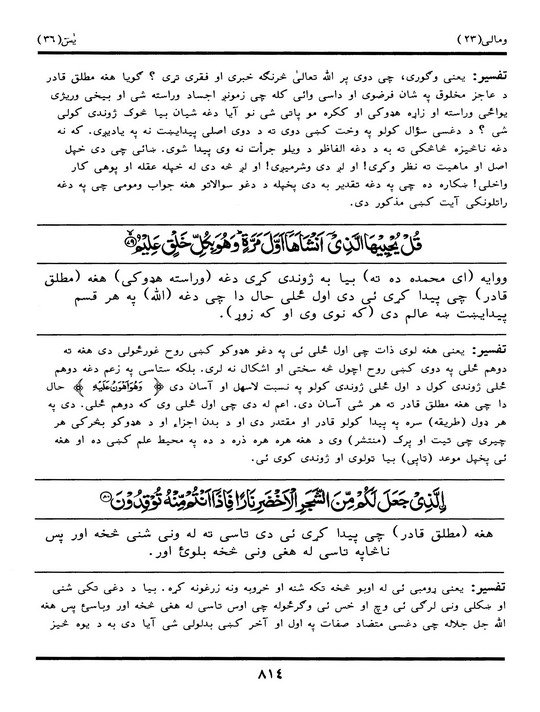 ومالی (۲۳)
یٰسٓ (۳۶)
تفسیر: یعنی وگوری، چی دوی پر الله تعالیٰ څرنگه خبری او فقری تړی ؟ گویا هغه مطلق قادر
د عاجز مخلوق په شان فرضوی او داسی وائی کله چی زمونږ اجساد وراسته شی او بیخی وریژی
یواځی وراسته او زاړه هډوکی او ککره مو پاتی شی نو آیا دغه شیان بیا څوک ژوندی کولی
شی ؟ د دغسی سؤال کولو په وخت کښی دوی ته د دوی اصلی پیدایښت نه په یادیږی. که نه
دغه ناڅیزه څاڅکی ته به د دغه الفاظو د ویلو جرأت نه وی پیدا شوی. ښائی چی دی خپل
اصل او ماهیت ته نظر وکړی! او لږ دی وشرمیږی! او لږ څه دی له خپله عقله او پوهی کار
واخلی! ښکاره ده چی په دغه تقدیر به دی پخپله د دغو سوالاتو هغه جواب ومومی چی په دغه
راتلونکی آیت کښی مذکور دی.
قُلْ يُحْيِيْهَا الَّذِیْٓ اَنْشَاَهَآ اَوَّلَ مَرَّةٍ وَهُوَ بِكُلِّ خَلْقٍ عَلِیْمُۙ ﴿۷۹﴾
ووایه (ای محمده ده ته) بیا به ژوندی کړی دغه (وراسته هډوکی) هغه (مطلق
قادر) چی پیدا کړی ئی دی اول ځلی حال دا چی دغه (الله) په هر قسم
پیدایښت ښه عالم دی (که نوی وی او که زوړ).
تفسیر: یعنی هغه لوی ذات چی اول ځلی ئی په دغو هډوکو کښی روح غورځولی دی هغه ته
دوهم ځلی په دوی کښی روح اچول څه سختی او اشکال نه لری. بلکه ستاسی په زعم دغه دوهم
ځلی ژوندی کول د اول ځلی ژوندی کولو په نسبت لاسهل او آسان دی ﴿ وَهُوَ اَهْوَنُ عَلَيْهِ ﴾ حال
دا چی هغه مطلق قادر ته هر شی آسان دی. اعم له دی چی اول ځلی وی که دوهم ځلی. دی په
هر ډول (طریقه) سره په پیدا کولو قادر او مقتدر دی او د بدن اجزاء او د هډوکو بخرکی هر
چیری چی ثبت او پرک (منتشر) وی د هغه هره هره ذره د ده په محیط علم کښی ده او هغه
ئی پخپل موعد (تاپی) بیا ټولوی او ژوندی کوی ئی.
إِلَّذِیْ جَعَلَ لَكُمْ مِّنَ الشَّجَرِ الْاَخْضَرِ نَارًا فَاِذَآ اَنْتُمْ مِّنْهُ تُوْقِدُوْنَ ﴿۸۰﴾
هغه (مطلق قادر) چی پیدا کړی ئی دی تاسی ته له ونی شنی څخه اور پس
ناڅاپه تاسی له هغی ونی څخه بلوئ اور.
تفسیر: یعنی ړومبی ئی له اوبو څخه تکه شنه او خړوبه ونه زرغونه کړه. بیا د دغی تکی شنی
او ښکلی ونی لرگی ئی وچ او خس ئی وگرځوله چی اوس تاسی له هغی څخه اور وباسئ پس هغه
الله جل جلاله چی دغسی متضاد صفات په اول او آخر کښی بدلولی شی آیا دی به د یوه څیز
۸۱٤